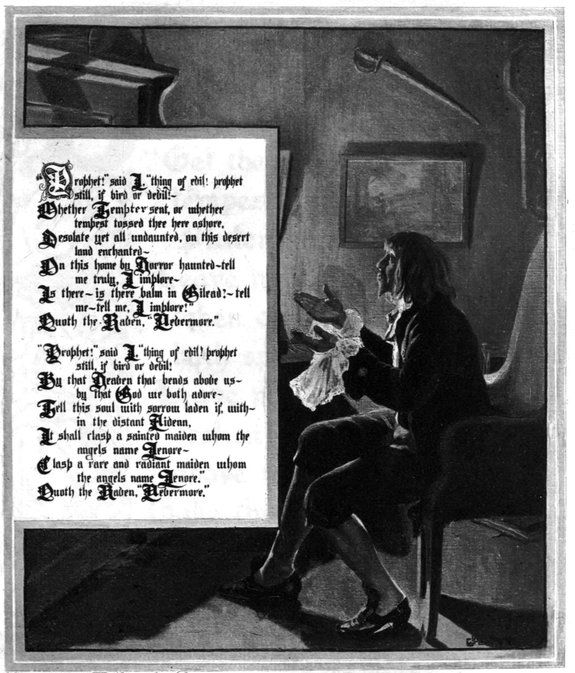 Prophet!" said I, "thing of evil! prophet
still, if bird or devil!~
Whether Tempter sent, or whether
tempest tossed thee here ashore,
Desolate yet all undaunted, on this desert
land enchanted~
On this home by Horror haunted~tell
me truly, I implore~
Is there~ is there balm in Gilead?~ tell
me~tell me, I implore!"
Quoth the Raven, "Nevermore."
"Prophet!" said I, "thing of evil! prophet
still, if bird or devil!
By that Heaven that bends above us~
by that God we both adore~
Tell this soul with sorrow laden if, with~
in the distant Aidenn,
It shall clasp a sainted maiden whom the
angels name Lenore~
Clasp a rare and radiant maiden whom
the angels name Lenore."
Quoth the Raven, "Nevermore."